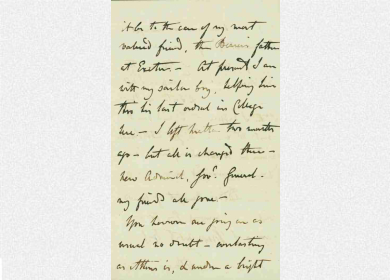 it be to the care of my most
valued friend, the Dean's father
at Exeter — At present I am
with my sailor boy, helping him
thro his last ordeal in College
here — I left two months
ago — but all is changed there —
new Admiral, Govr. General.
my friends all gone —
You however are going on as
usual no doubt — everlasting
as Athens is, & under a bright